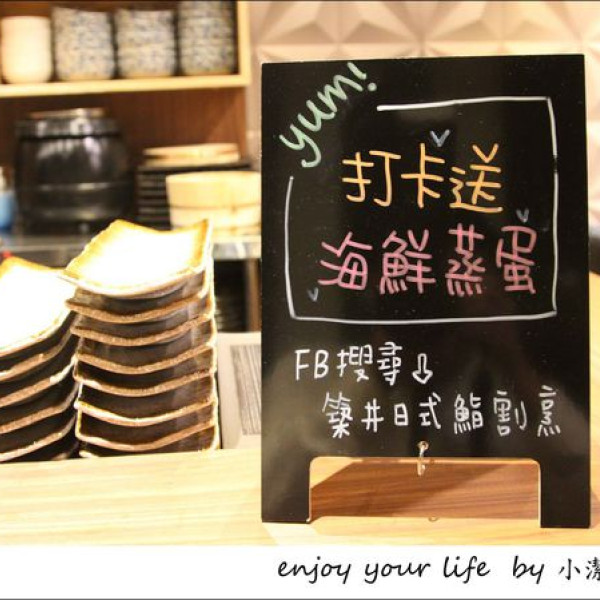 yum!
打卡送
海鮮蒸蛋
FB搜尋⇩
築井日式鮨割烹
enjoy your life by 小潔